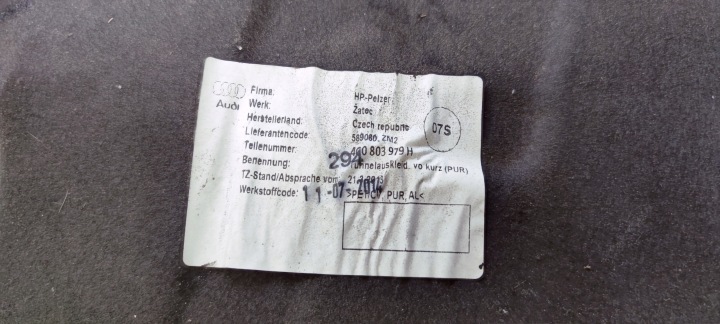 Audi
Firma: HP-Pelzer
Werk: Žatec
Herstellerland: Czech republic
Lieferantencode: 589080, ZM2
07S
Teilenummer: 4G0 803 979 H
Benennung: Tunnelauskleid. vo kurz (PUR)
294
TZ-Stand/Absprache vom: 21.3.2013
Werkstoffcode: PUR, AL<
11-07-2014